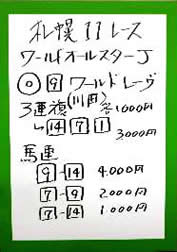 札幌11レース
ワールドオールスターJ
◎ 9 ワールドレーヴ
(川田)
3連複 各1,000円
↳ 14 7 1
3,000円
馬連
9-14 4,000円
7-9 2,000円
7-14 1,000円